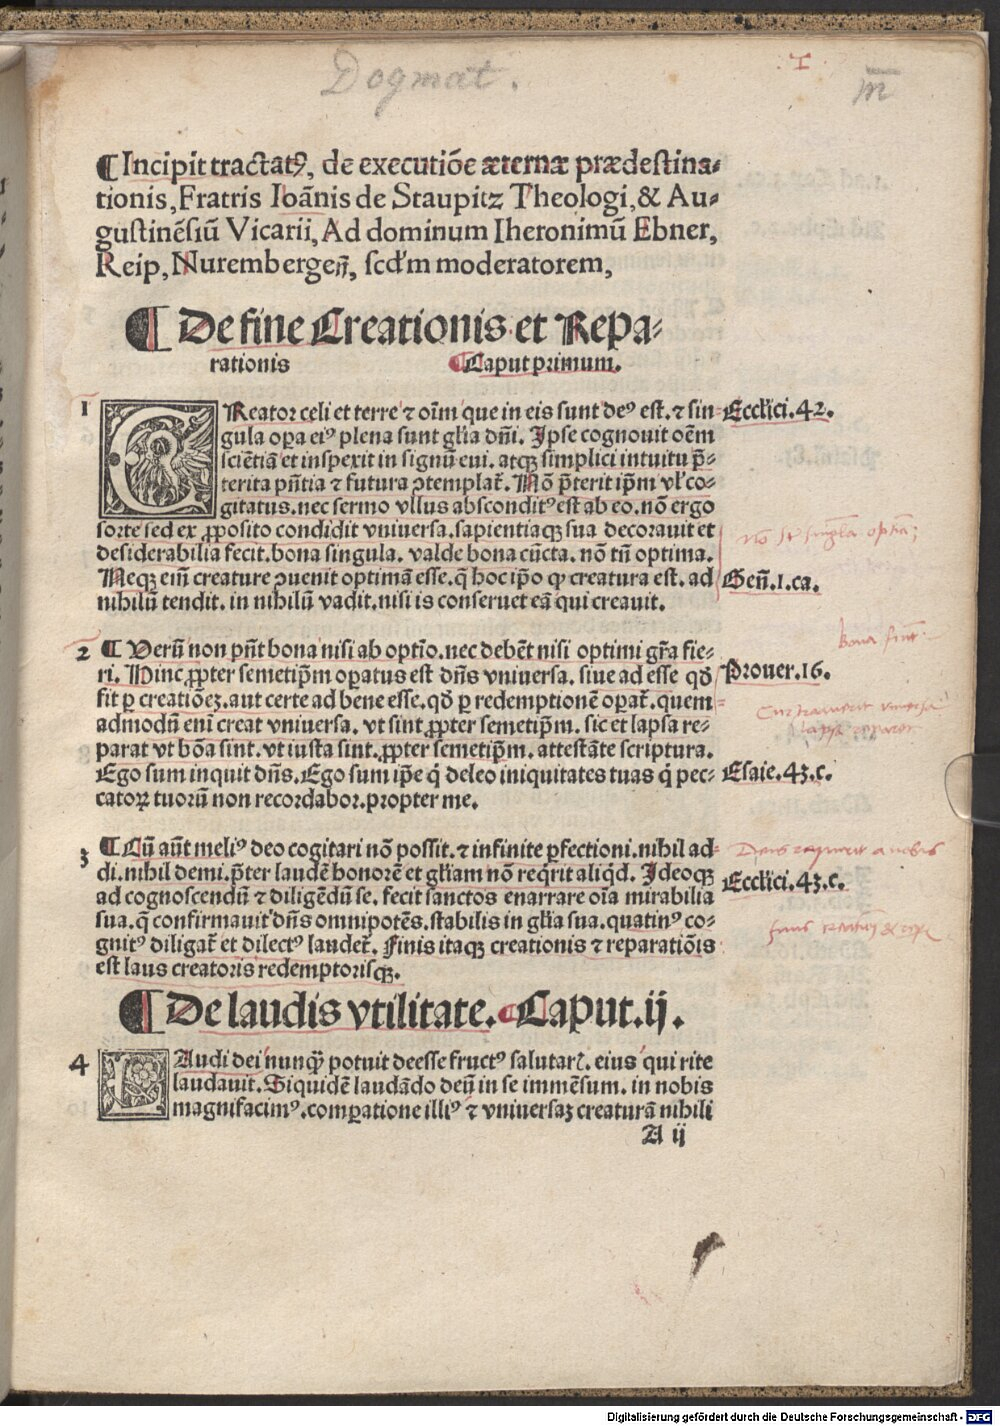 Dogmat.
I
m̄
¶ Incipit tractatꝰ, de executiõe æternæ prædestina⸗
tionis, Fratris Ioãnis de Staupitz Theologi, & Au⸗
gustinẽsiũ Vicarii, Ad dominum Iheronimũ Ebner,
Reip, Nurembergeñ, scd'm moderatorem,
¶ De fine Creationis et Repa⸗
rationis ¶ Caput primum.
1 CReator celi et terre ⁊ oĩm que in eis sunt deꝰ est. ⁊ sin⸗ Ecclici. 42.
gula oꝑa eiꝰ plena sunt gl̃ia dñi. Ipse cognouit oẽm
sciẽtiã et inspexit in signũ eui. atqꝫ simplici intuitu p̃⸗
terita pñtia ⁊ futura ꝯtemplat̃. Nõ p̃terit ip̃m vl̃' co⸗
gitatus. nec sermo vllus absconditꝰ est ab eo. nõ ergo
sorte sed ex ꝓposito condidit vniuersa. sapientiaqꝫ sua decorauit et
desiderabilia fecit. bona singula. valde bona cũcta. nõ tñ optima.
Neqꝫ eiñ creature ꝯuenit optimã esse. q̃ hoc ip̃o ꝙ creatura est. ad Geñ. 1. ca.
nihilũ tendit. in nihilũ vadit. nisi is conseruet eã qui creauit.
2 ¶ Verũ non pñt bona nisi ab optĩo. nec debẽt nisi optimi gr̃a fie⸗
ri. Hinc ꝓpter semetip̃m oꝑatus est dñs vniuersa. siue ad esse qđ Prouer. 16.
fit ꝑ creationẽꝫ. aut certe ad bene esse. qđ ꝑ redemptionẽ oꝑat̃. quem
admodũ eni creat vniuersa. vt sint ꝓpter semetip̃m. sic et lapsa re⸗
parat vt bõa sint. vt iusta sint. ꝓpter semetip̃m. attestãte scriptura.
Ego sum inquit dñs. Ego sum ip̃e q̃ deleo iniquitates tuas q̃ pec⸗ Esaie. 43. c.
catoꝝ tuorũ non recordabor. propter me.
3 ¶ Cũ aũt meliꝰ deo cogitari nõ possit. ⁊ infinite ꝑfectioni. nihil ad⸗
di. nihil demi. p̃ter laudẽ honorẽ et gl̃iam nõ req̃rit aliq̃d. Ideoqꝫ Ecclici. 43. c.
ad cognoscendũ ⁊ diligẽdũ se. fecit sanctos enarrare oĩa mirabilia
sua. q̃ confirmauit dñs omnipotẽs. stabilis in gl̃ia sua. quatinꝰ co⸗
gnitꝰ diligat̃ et dilectꝰ laudet̃. Finis itaqꝫ creationis ⁊ reparatiõis
est laus creatoris redemptorisqꝫ.
¶ De laudis vtilitate. ¶ Caput. ij.
4 LAudi dei nunqꝫ̃ potuit deesse fructꝰ salutar̃. eius qui rite
laudauit. Siquidẽ laudãdo deũ in se immẽsum. in nobis
magnifacimꝰ. comꝑatione illiꝰ ⁊ vniuersaꝫ creaturã nihili
A ij
Digitalisierung gefördert durch die Deutsche Forschungsgemeinschaft - DFG